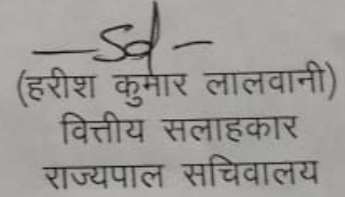 —Sd—
(हरीश कुमार लालवानी)
वित्तीय सलाहकार
राज्यपाल सचिवालय